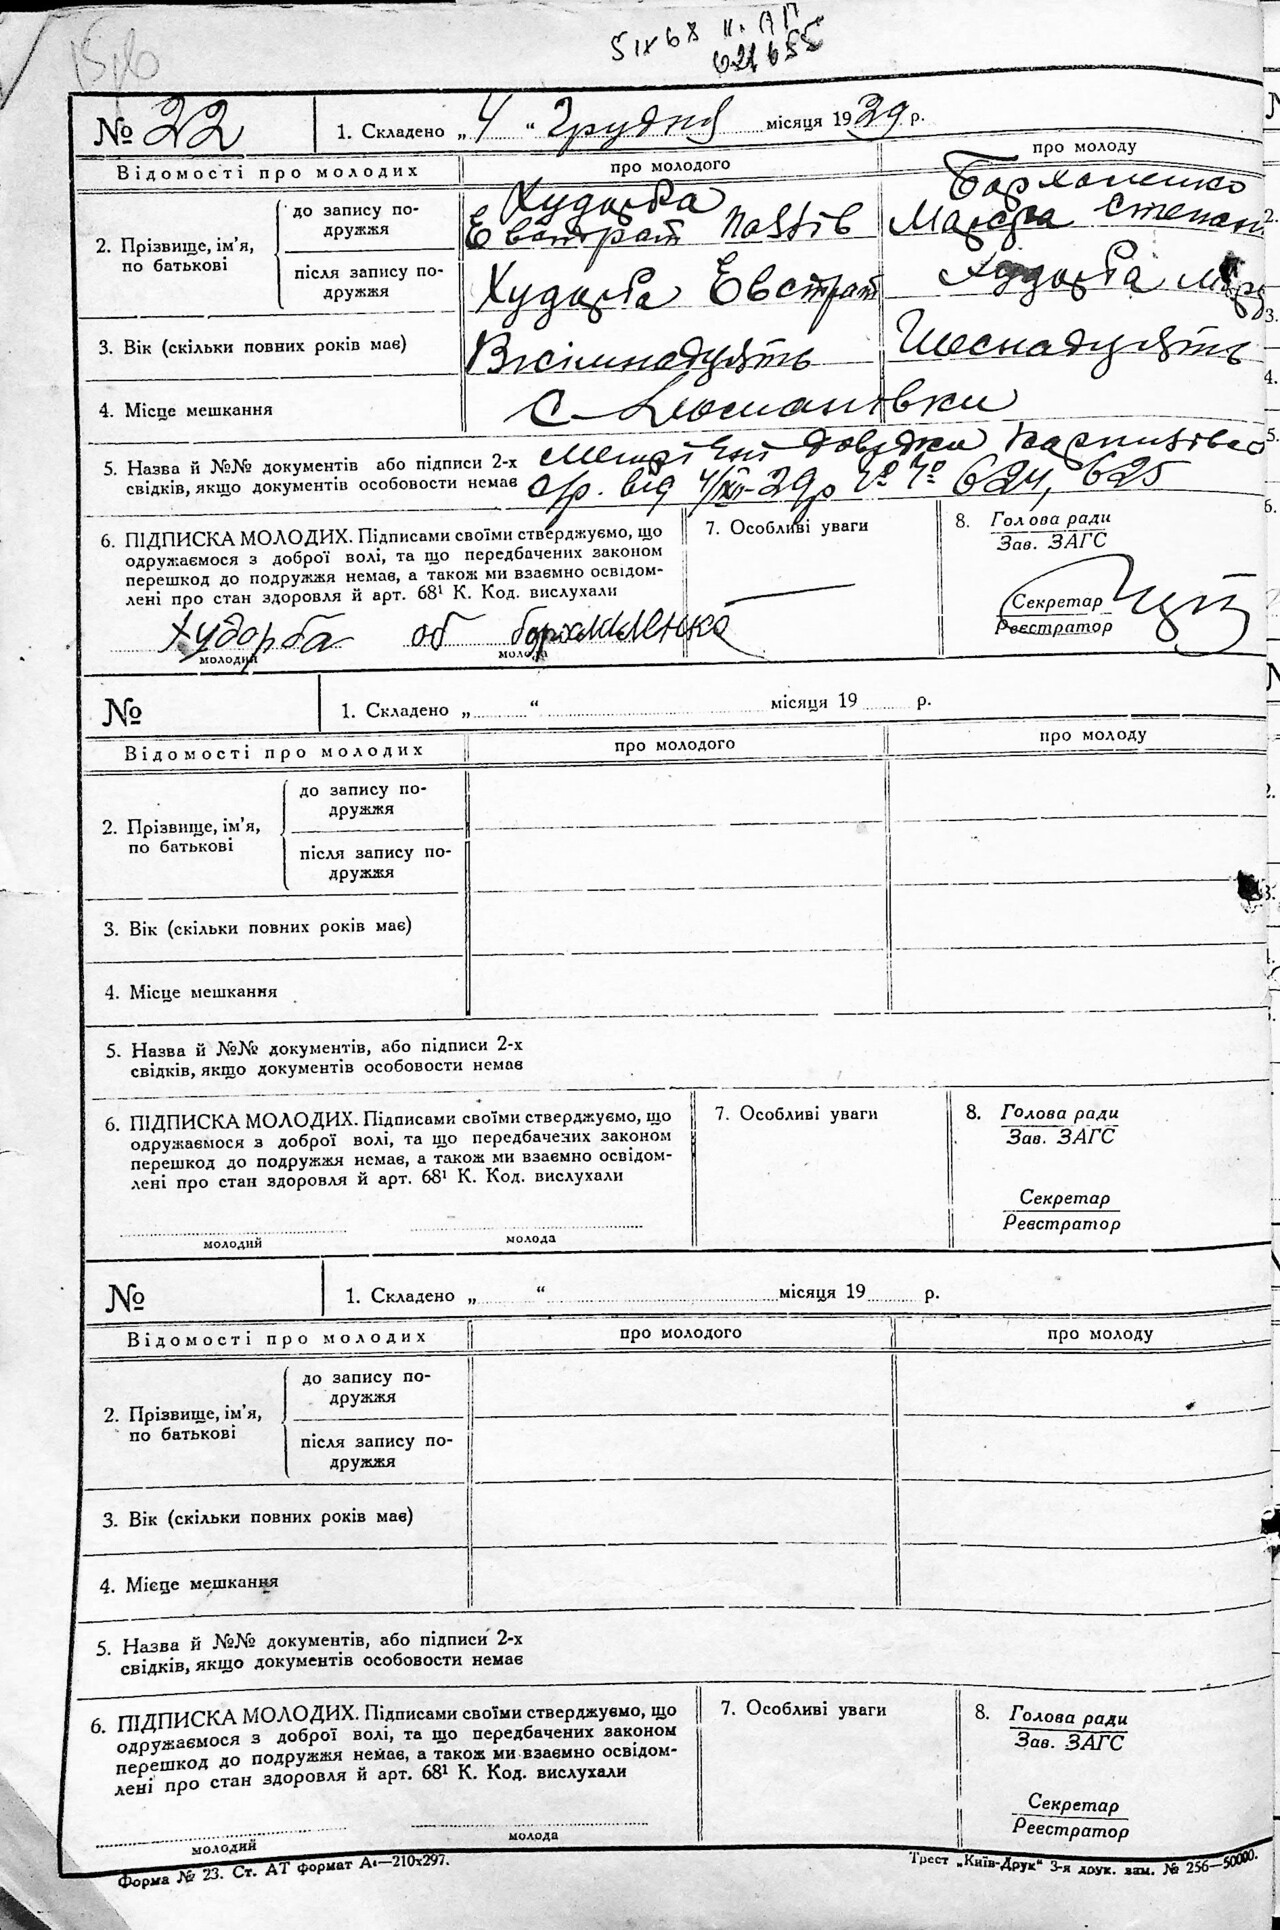 5 IX 68 II. АП
621655
№ 22
1. Складено „ 4 “ Грудня місяця 1929 р.
Відомості про молодих
про молодого
про молоду
2. Прізвище, ім’я, по батькові
до запису подружжя
Худорба
Евстрат
після запису подружжя
Худорба Евстрат
Худорба
3. Вік (скільки повних років має)
Вісімнадцять
Шеснадцять
4. Місце мешкання
с.
5. Назва й №№ документів або підписи 2-х
свідків, якщо документів особовости немає
від 4/XII-29р №№ 624, 625
6. ПІДПИСКА МОЛОДИХ. Підписами своїми стверджуємо, що
одружаємося з доброї волі, та що передбачених законом
перешкод до подружжя немає, а також ми взаємно освідом-
лені про стан здоровля й арт. 68¹ К. Код. вислухали
Худорба
молодий
молода
7. Особливі уваги
8. Голова ради
Зав. ЗАГС
Секретар
Реєстратор
№
1. Складено „ “ місяця 19 р.
Відомості про молодих
про молодого
про молоду
2. Прізвище, ім’я,
по батькові
до запису по-
дружжя
після запису по-
дружжя
3. Вік (скільки повних років має)
4. Місце мешкання
5. Назва й №№ документів, або підписи 2-х
свідків, якщо документів особовости немає
6. ПІДПИСКА МОЛОДИХ. Підписами своїми стверджуємо, що
одружаємося з доброї волі, та що передбачених законом
перешкод до подружжя немає, а також ми взаємно освідом-
лені про стан здоровля й арт. 68¹ К. Код. вислухали
молодий
молода
7. Особливі уваги
8. Голова ради
Зав. ЗАГС
Секретар
Реєстратор
№
1. Складено „ “ місяця 19 р.
Відомості про молодих
про молодого
про молоду
2. Прізвище, ім’я,
по батькові
до запису по-
дружжя
після запису по-
дружжя
3. Вік (скільки повних років має)
4. Місце мешкання
5. Назва й №№ документів, або підписи 2-х
свідків, якщо документів особовости немає
6. ПІДПИСКА МОЛОДИХ. Підписами своїми стверджуємо, що
одружаємося з доброї волі, та що передбачених законом
перешкод до подружжя немає, а також ми взаємно освідом-
лені про стан здоровля й арт. 68¹ К. Код. вислухали
молодий
молода
7. Особливі уваги
8. Голова ради
Зав. ЗАГС
Секретар
Реєстратор
Форма № 23. Ст. АТ формат А4—210х297.
Трест „Київ-Друк“ 3-я друк. зам. № 256—50000.